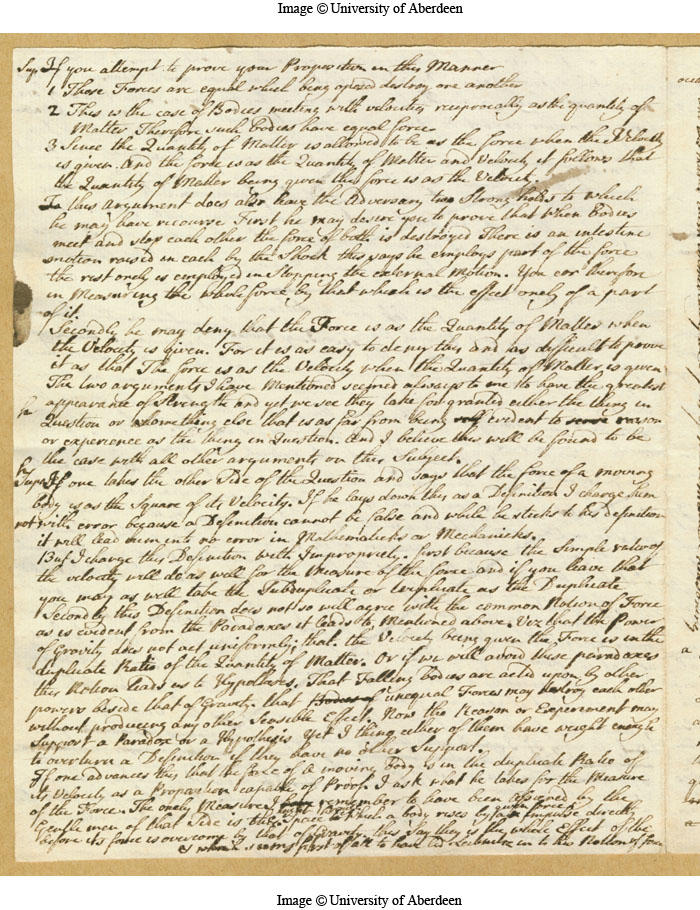 Image © University of Aberdeen
Sup. If you attempt to prove your Proposition in this Manner
1 Those Forces are equal which being oposed destroy one another
2 This is the case of Bodies meeting with velocities reciprocally as the quantity of
Matter, Therefore such bodies have equal force
3 Since the Quantity of Matter is allowed to be as the force when the Velocity
is given. And the force is as the Quantity of Matter and Velocity it follows that
the Quantity of Matter being given the force is as the Velocity.
This Argument does also leave the Adversary two Strong holds to which
he may have recourse First he may desire you to prove that when bodies
meet and stop each other the force of both is destroyed There is an intestine
motion raised in each by the Shock this says he employs part of the force
the rest onely is employed in Stopping the external Motion. You err therefore
in Measuring the whole force by that which is the effect onely of a part
of it.
Secondly he may deny that the Force is as the Quantity of Matter when
the Velocity is given. For it is as easy to deny this and as difficult to prove
it as that The force is as the Velocity when the Quantity of Matter is given
The two arguments I have Mentioned seemed always to me to have the greatest
appearance of Strength and yet we see they take for granted either the thing in
Question or something else that is as far from being evident to reason
or experience as the thing in Question. And I believe this will be found to be
the case with all other arguments on this Subject.
If one takes the other Side of the Question and says that the force of a moving
body is as the Square of its Velocity. If he lays down this as a Definition I charge him
not with error because a Definition cannot be false and while he sticks to his definition
it will lead him into no error in Mathematicks or Mechanicks.
But I charge this Definition with Impropriety. first because the Simple ratio of
the velocity will do as well for the Measure of the force and if you leave that
you may as well take the Subduplicate or triplicate as the Duplicate
Secondly this Definition does not so well agree with the common Notion of Force
as is evident from the Paradoxes it leads to, Mentioned above. Viz that the Power
of Gravity does not act uniformly; that the Velocity being given the Force is in the
duplicate Ratio of the Quantity of Matter. Or if we will avoid these paradoxes
this Notion leads us to Hypotheses. That Falling bodies are acted upon by other
powers beside that of Gravity. that unequal Forces may destroy each other
without producing any other Sensible Effect. Now tho Reason or Experiment may
Support a Paradox or a Hypothesis Yet I thing either of them have weight enough
to overturn a Definition if they have no other Support.
If one advances this that the force of a moving body is in the duplicate Ratio of
its Velocity as a Proposition capable of Proof. I ask what he takes for the Measure
of the Force. The onely Measure I remember to have been assigned by the
Gentle men of that Side is the Space which a body rises by an impulse directly
before its force is overcome by that of Gravity. this say they is the whole Effect of the
Image © University of Aberdeen